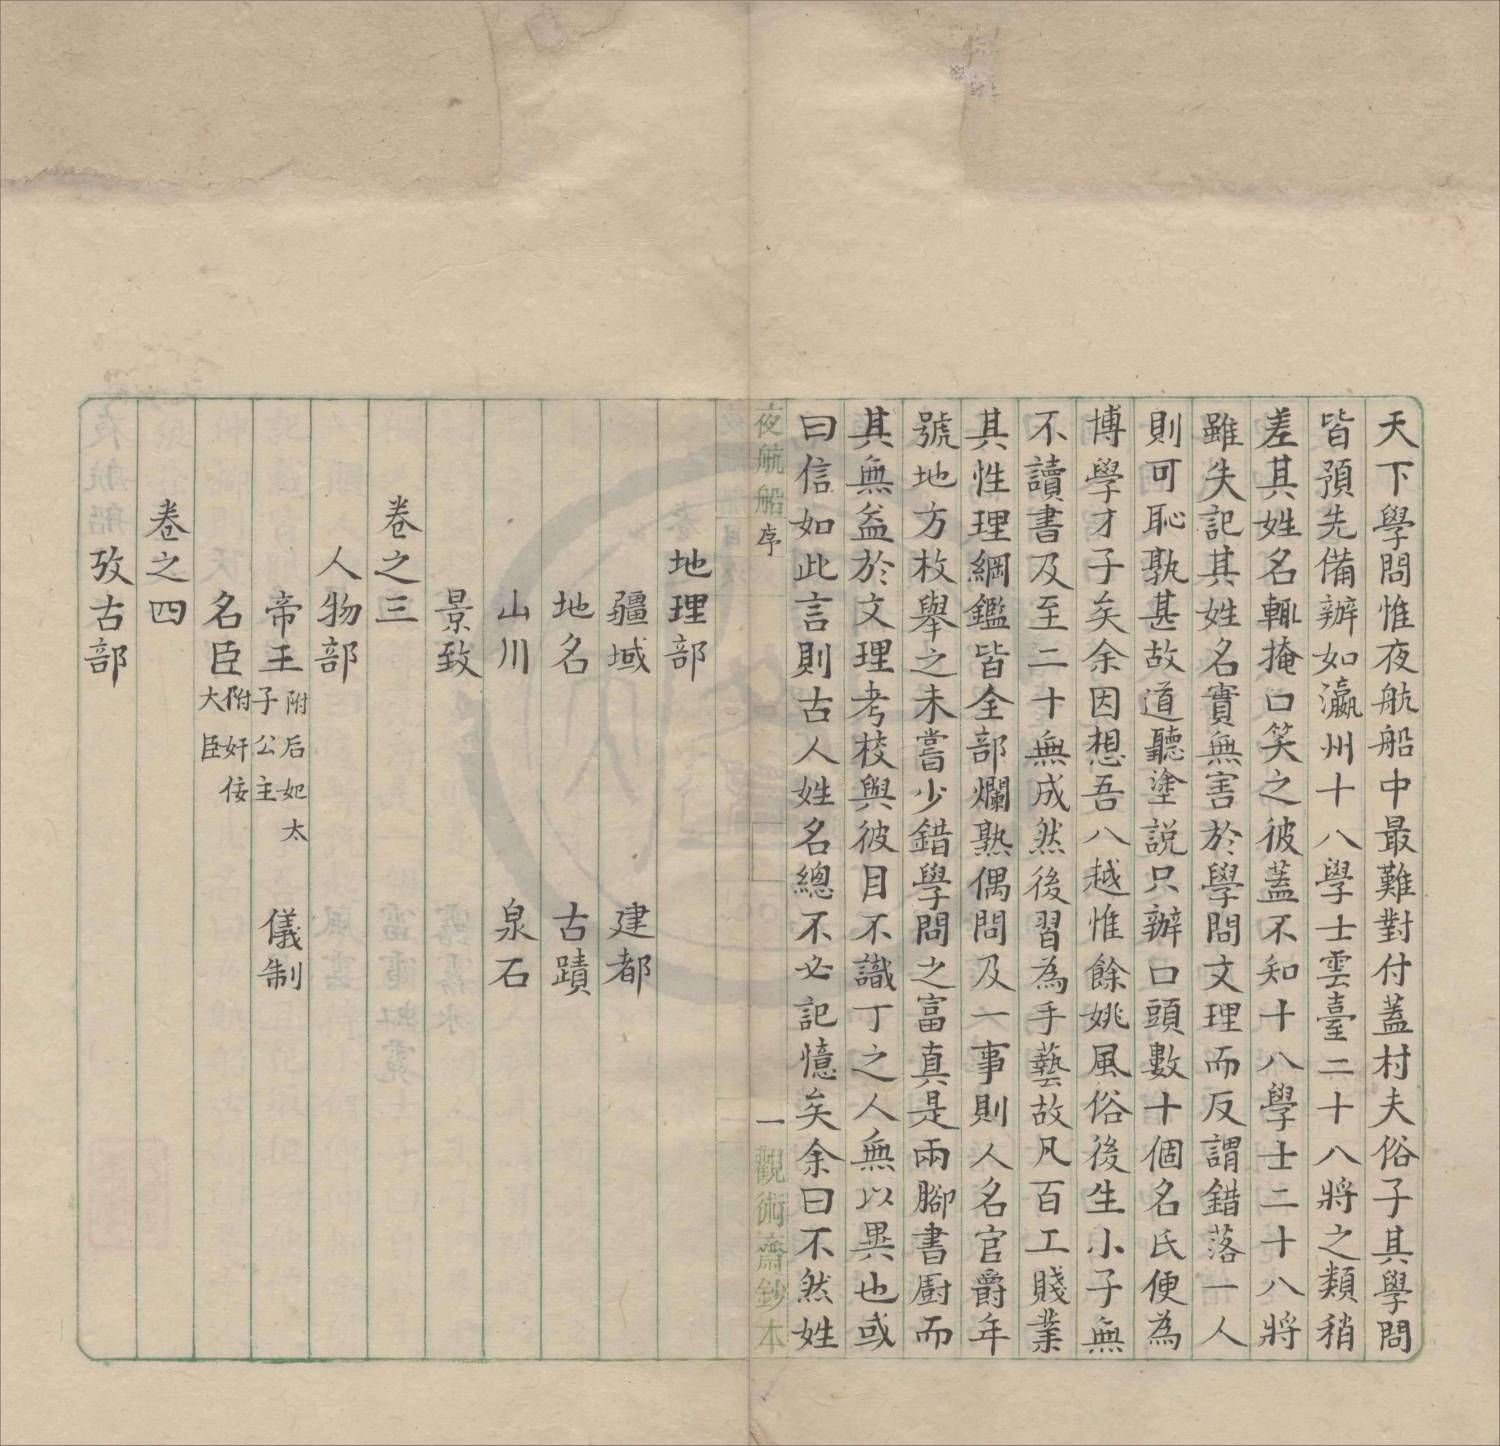 天下學問惟夜航船中最難對付蓋村夫俗子其學問
皆預先備辦如瀛州十八學士雲臺二十八將之類稍
差其姓名輒掩口笑之彼蓋不知十八學士二十八將
雖失記其姓名實無害於學問文理而反謂錯落一人
則可恥孰甚故道聽塗説只辦口頭數十個名氏便為
博學才子矣余因想吾八越惟餘姚風俗後生小子無
不讀書及至二十無成然後習為手藝故凡百工賤業
其性理綱鑑皆全部爛熟偶問及一事則人名官爵年
號地方枚舉之未嘗少錯學問之富真是兩腳書厨而
其無益於文理考校與彼目不識丁之人無以異也或
曰信如此言則古人姓名總不必記憶矣余曰不然姓
夜航船 序 一 觀術齋鈔本
地理部
疆域 建都
地名 古蹟
山川 泉石
景致
卷之三
人物部
帝王 附后妃太子公主 儀制
名臣 附奸佞大臣
卷之四
攷古部